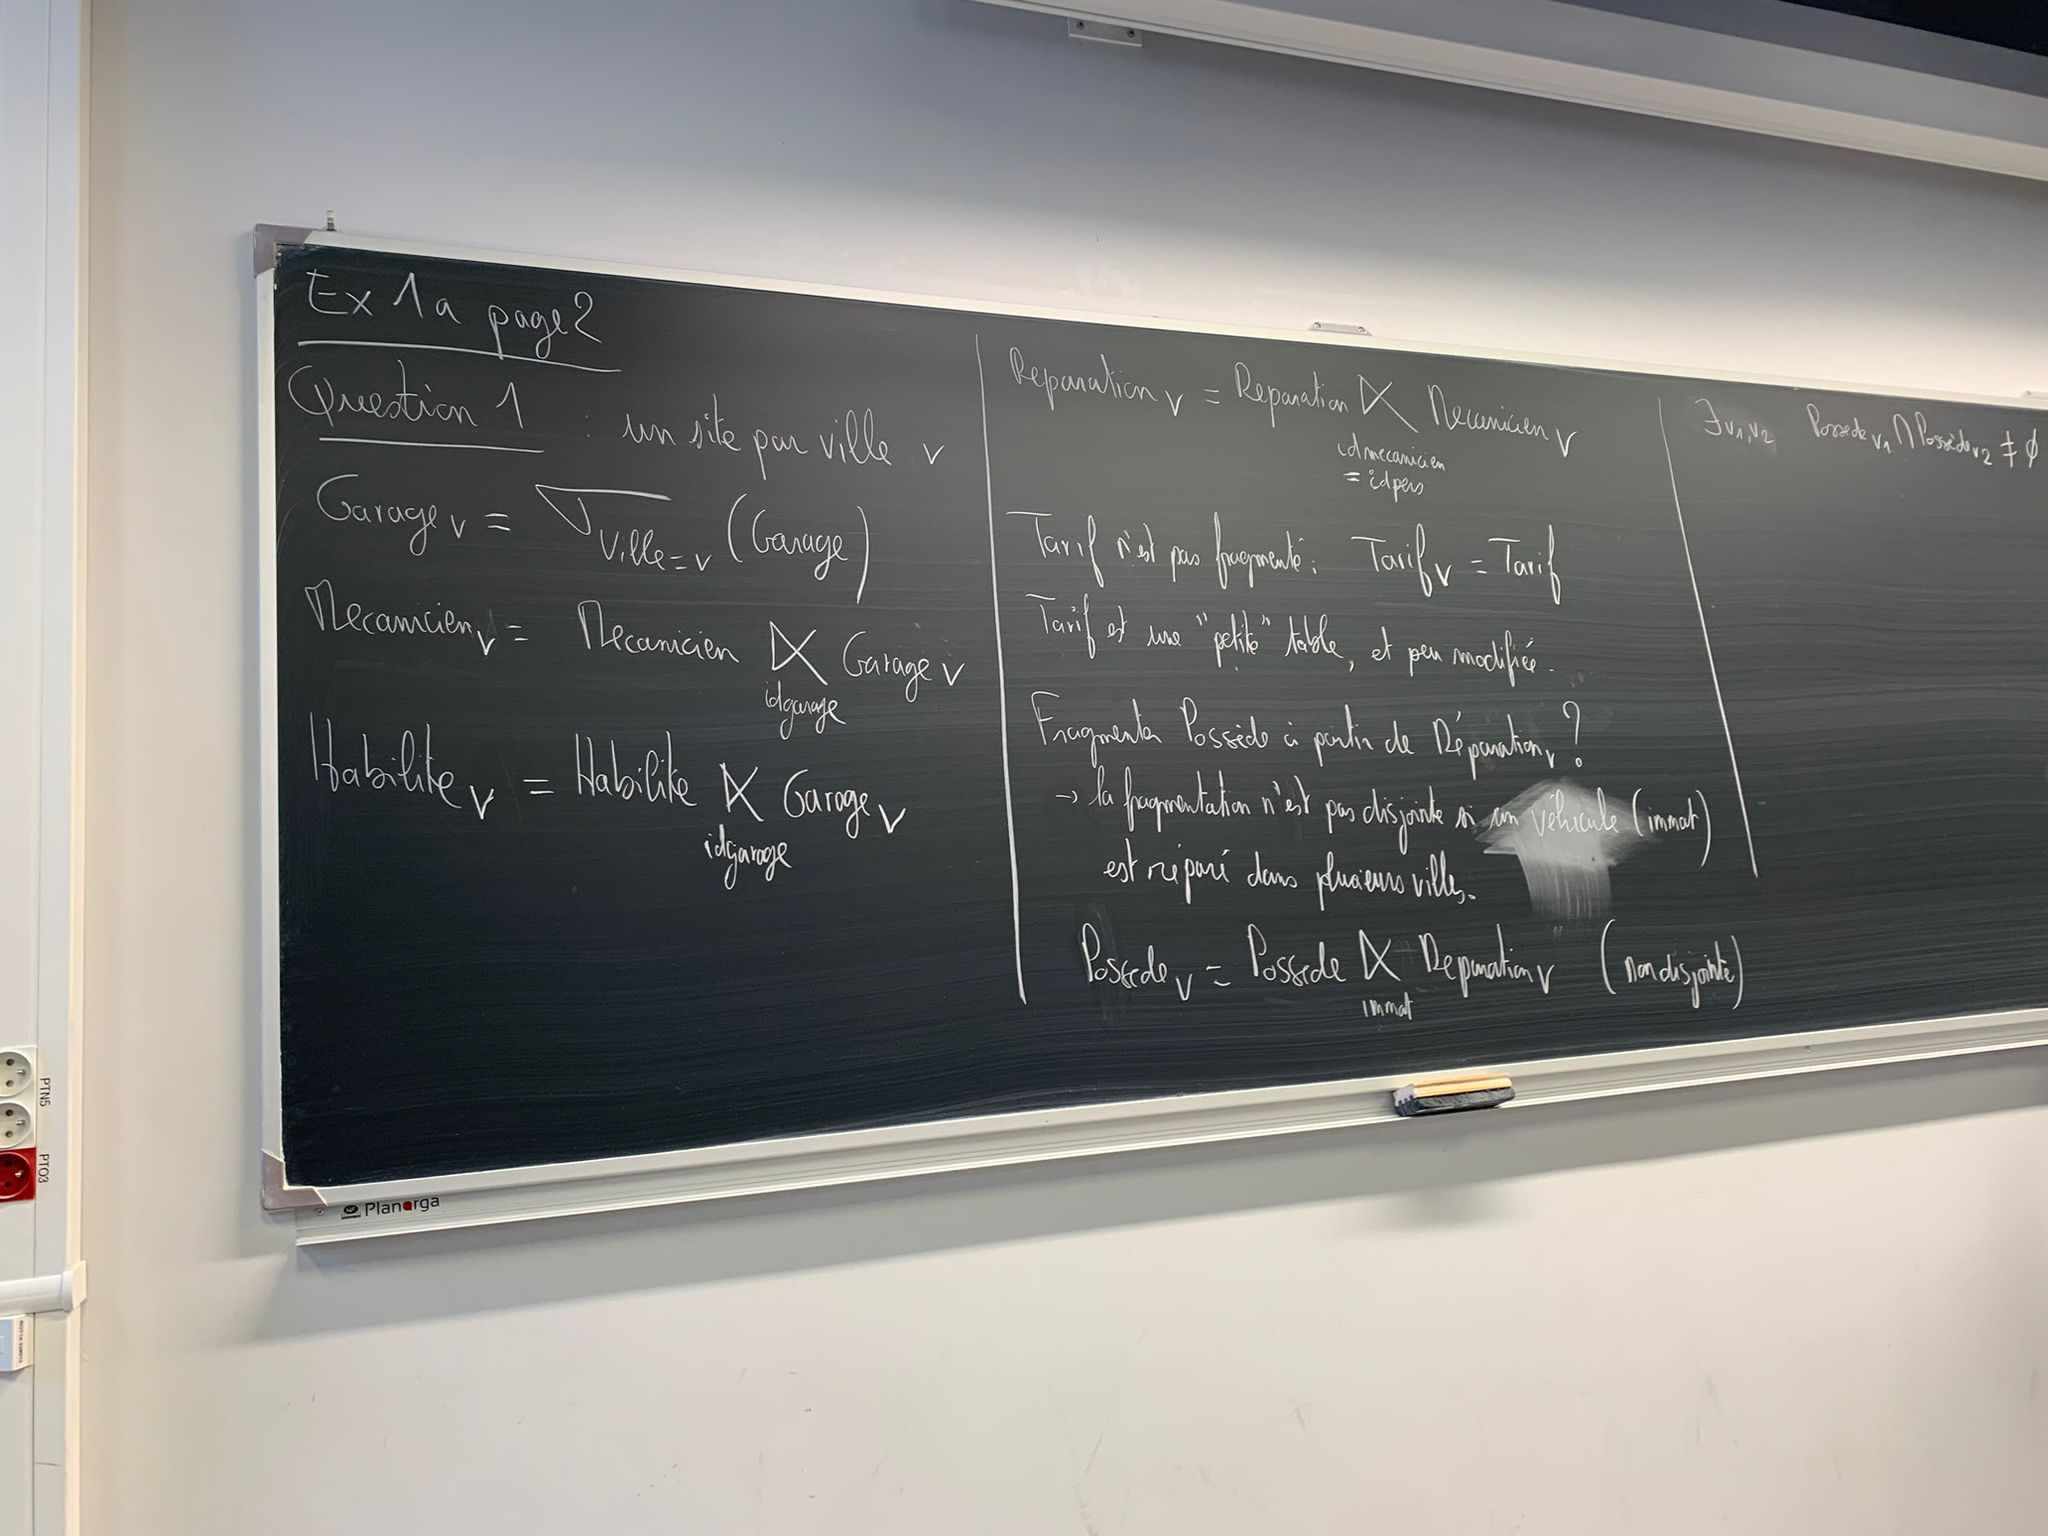 Ex 1a page 2
Question 1 : un site par ville v
Garage v = σ ville=v (Garage)
Mecanicien v = Mecanicien ⋉ Garage v
idgarage
Habilite v = Habilite ⋉ Garage v
idgarage
Reparation v = Reparation ⋉ Mecanicien v
idmecanicien
= idpers
Tarif n'est pas fragmenté : Tarif v = Tarif
Tarif est une "petite" table, et peu modifiée.
Fragmenter Possède à partir de Réparation v ?
→ la fragmentation n'est pas disjointe si un véhicule (immat)
est réparé dans plusieurs villes.
Possede v = Possede ⋉ Reparation v (non disjointe)
immat
∃ v1, v2 Possede v1 ∩ Possède v2 ≠ ∅
Planorga
PTN5
PT03